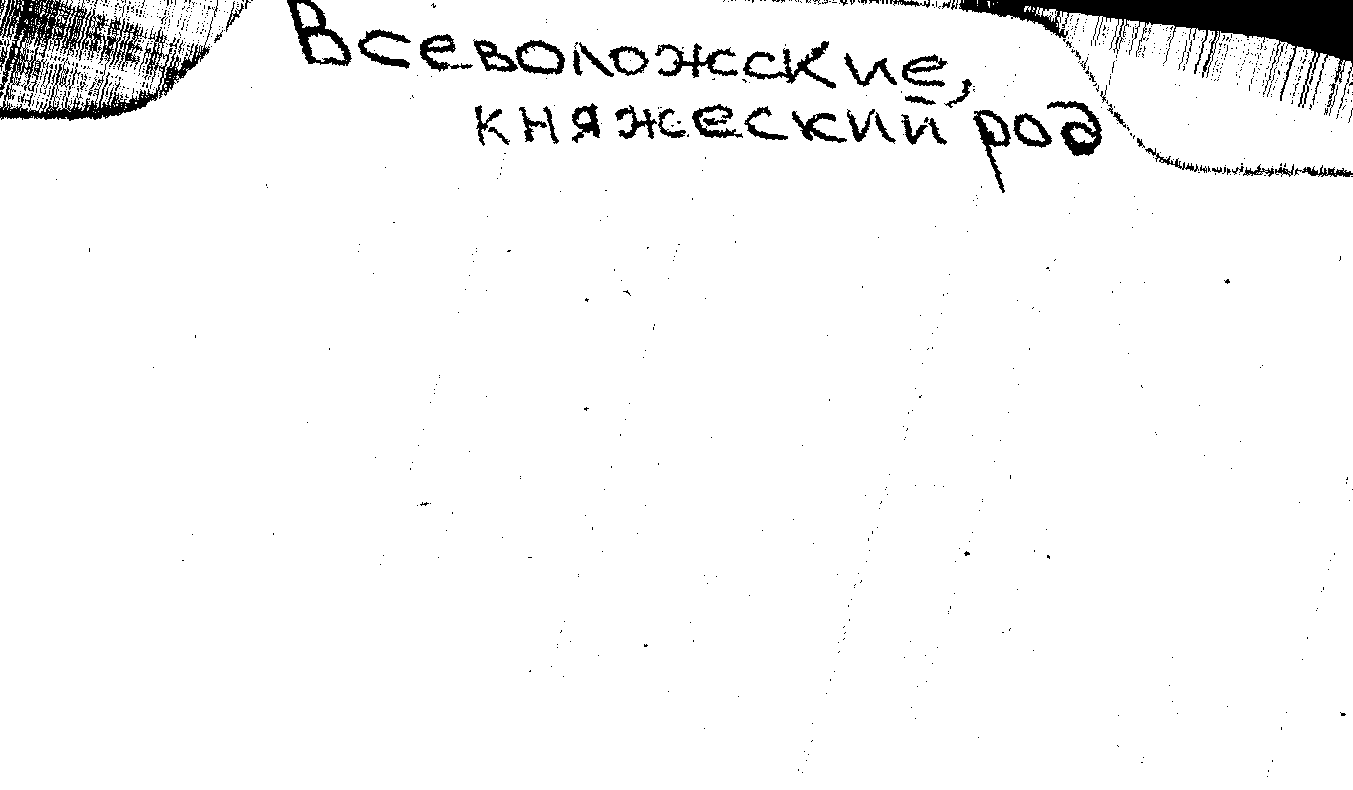 Всеволожские,
княжеский род